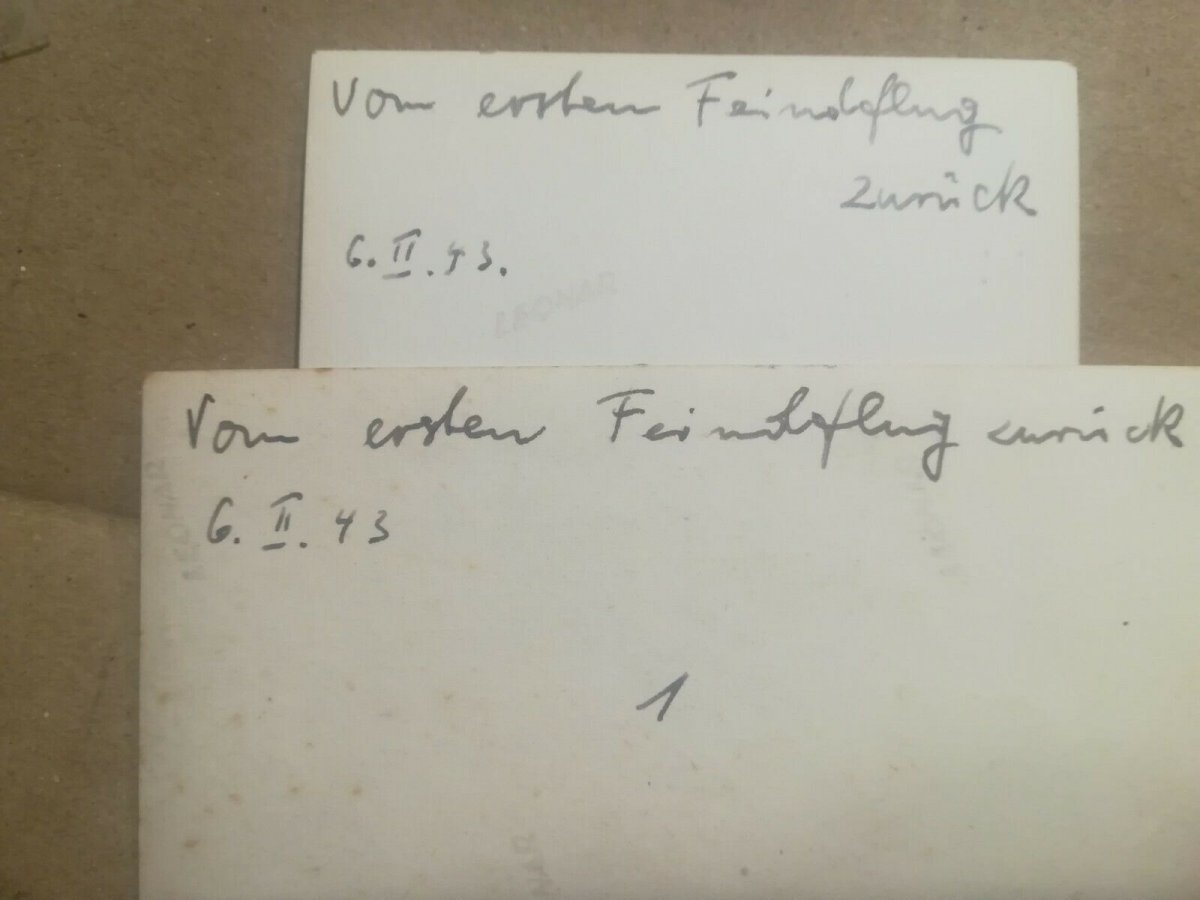 Vom ersten Feindflug
zurück
6. II. 43.
Vom ersten Feindflug zurück
6. II. 43
1